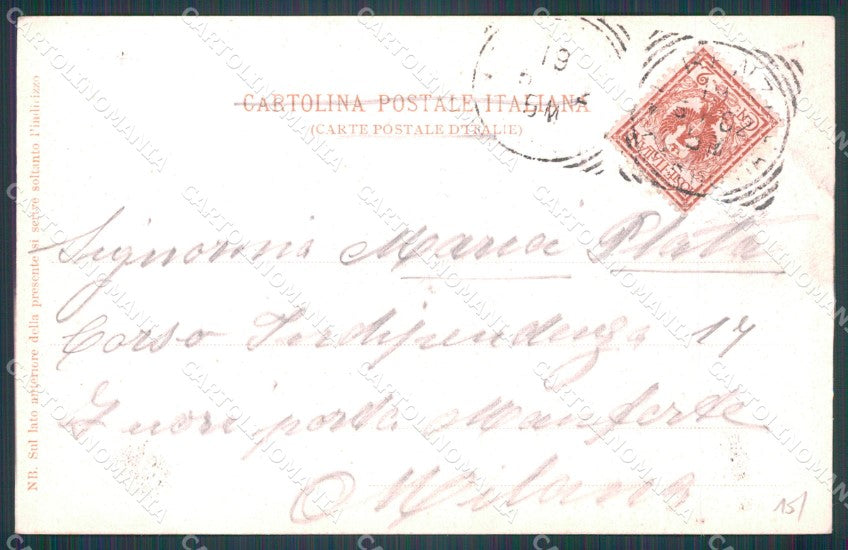 CARTOLINA POSTALE ITALIANA
(CARTE POSTALE D'ITALIE)
NB. Sul lato anteriore della presente si scrive soltanto l'indirizzo
Signorina Maria Plata
Corso Indipendenza 14
Fuori porta Monforte
Milano
15/
CARTOLINOMANIA